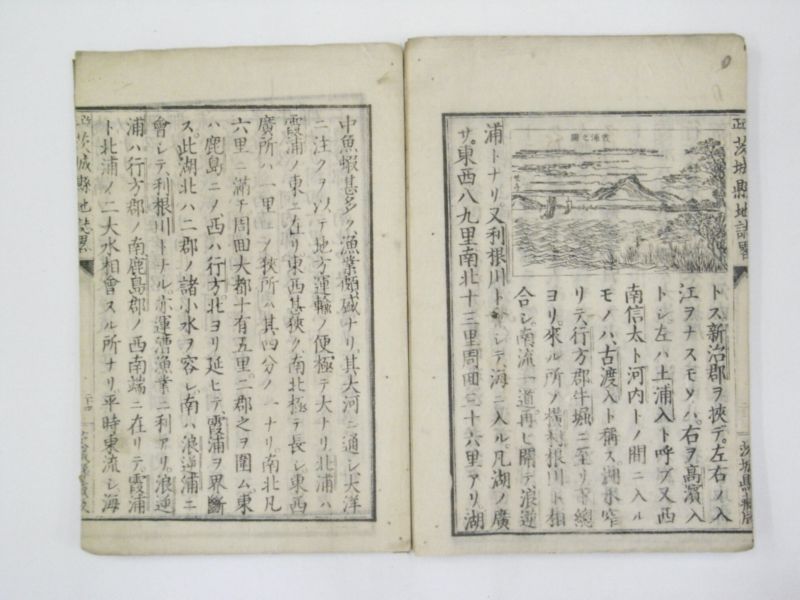 茨城縣地誌畧
トス新治郡ヲ挾デ左右ノ入
江ヲナスモノハ右ヲ高濱入
トシ左ハ土浦入ト呼ブ又西
南信太ト河内トノ間ニ入ル
モノハ古渡入ト稱ス湖水窄
リテ行方郡牛堀ニ至リ下總
ヨリ來ル所ノ横利根川ト相
合シ南流一道再ビ開テ浪逆
浦トナリ又利根川トシテ海ニ入ル凡湖ノ廣
サ東西八九里南北十三里周回三十六里アリ湖
中魚蝦甚多ク漁業頗盛ナリ其大河ニ通シ大洋
ニ注クヲ以テ地方運輸ノ便極テ大ナリ北浦ハ
霞浦ノ東ニ在リ東西甚狹ク南北極テ長シ東西
廣所ハ一里ノ狹所ハ其四分ノ一ナリ南北凡
六里ニ滿チ周回大都十有五里二郡之ヲ圍ム東
ハ鹿島ニノ西ハ行方北ヨリ延ヒテ霞浦ヲ界斷
ス此湖北ハ二郡ノ諸小水ヲ容レ南ハ浪逆浦ニ
會シテ利根川トナル亦運漕漁業ニ利アリ浪逆
浦ハ行方郡ノ南鹿島郡ノ西南端ニ在リテ霞浦
ト北浦ノ二大水相會スル所ナリ平時東流シ海
茨城縣地誌畧